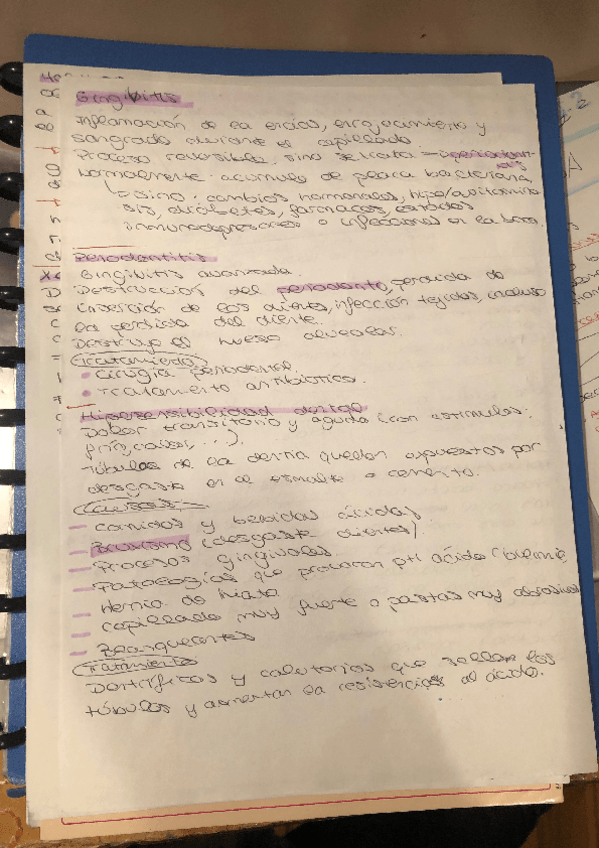 Gingivitis
Inflamación de la encías, enrojecimiento y
sangrado durante el cepillado.
Proceso reversible, sino se trata → periodonti-
tis
Normalmente: acúmulo de placa bacteriana,
sino: cambios hormonales, hipo/avitamino
sis, diabetes, fármacos, estados
inmunodepresores o infecciones en la boca.
Periodontitis
Gingivitis avanzada.
Destrucción del periodonto, perdida de
inserción de los dientes, infección tejidos, incluso
la perdida del diente.
Destruye el hueso alveolar.
Tratamiento
Cirugía periodontal.
Tratamiento antibiótico.
Hipersensibilidad dental
Dolor transitorio y agudo (con estímulos:
frío, calor, ...).
Túbulos de la dentina quedan expuestos por
desgaste en el esmalte o cemento.
Causas
- Comidas y bebidas ácidas
- Bruxismo (desgaste dientes)
- Procesos gingivales.
- Patologías que provocan pH ácido (bulimia,
- Hernia de hiato
- Cepillado muy fuerte o pastas muy abrasivas
- Blanqueantes
Tratamiento
Dentífricos y colutorios que sellan los
túbulos y aumentan la resistencia al ácido.